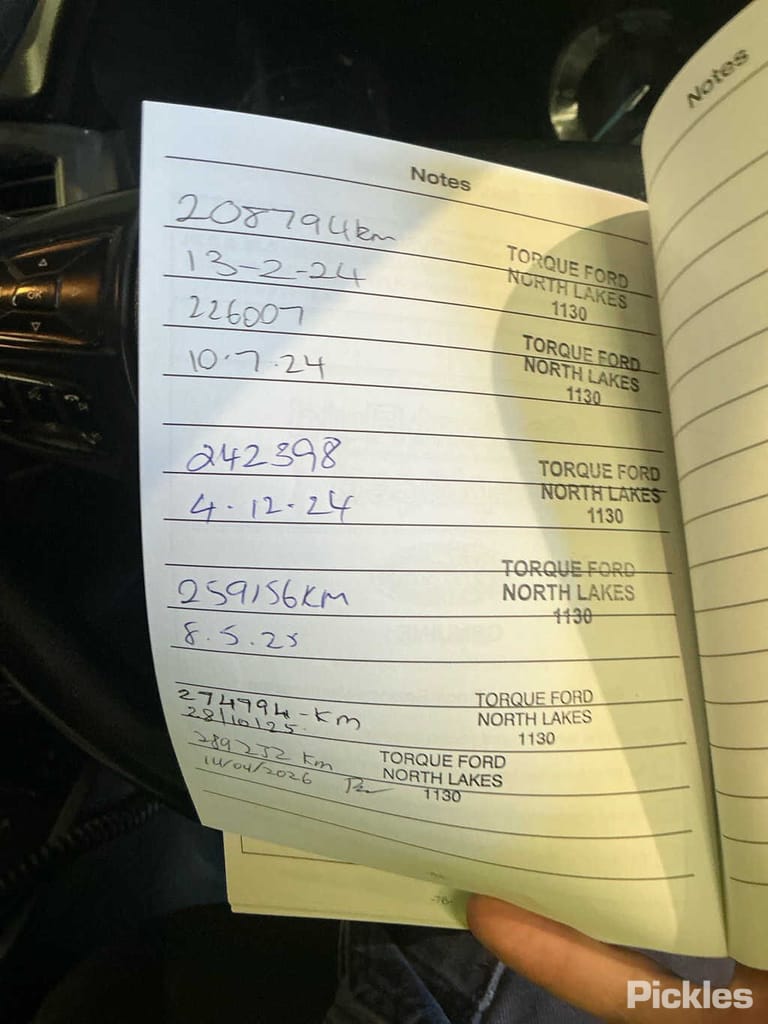 Notes
Notes
208794km
13-2-24
TORQUE FORD
NORTH LAKES
1130
226007
10.7.24
TORQUE FORD
NORTH LAKES
1130
242398
4.12.24
TORQUE FORD
NORTH LAKES
1130
259156KM
8.5.25
TORQUE FORD
NORTH LAKES
1130
274794-KM
28/10/25
TORQUE FORD
NORTH LAKES
1130
289232 KM
14/04/2026
TORQUE FORD
NORTH LAKES
1130
-76-
OK
Pickles